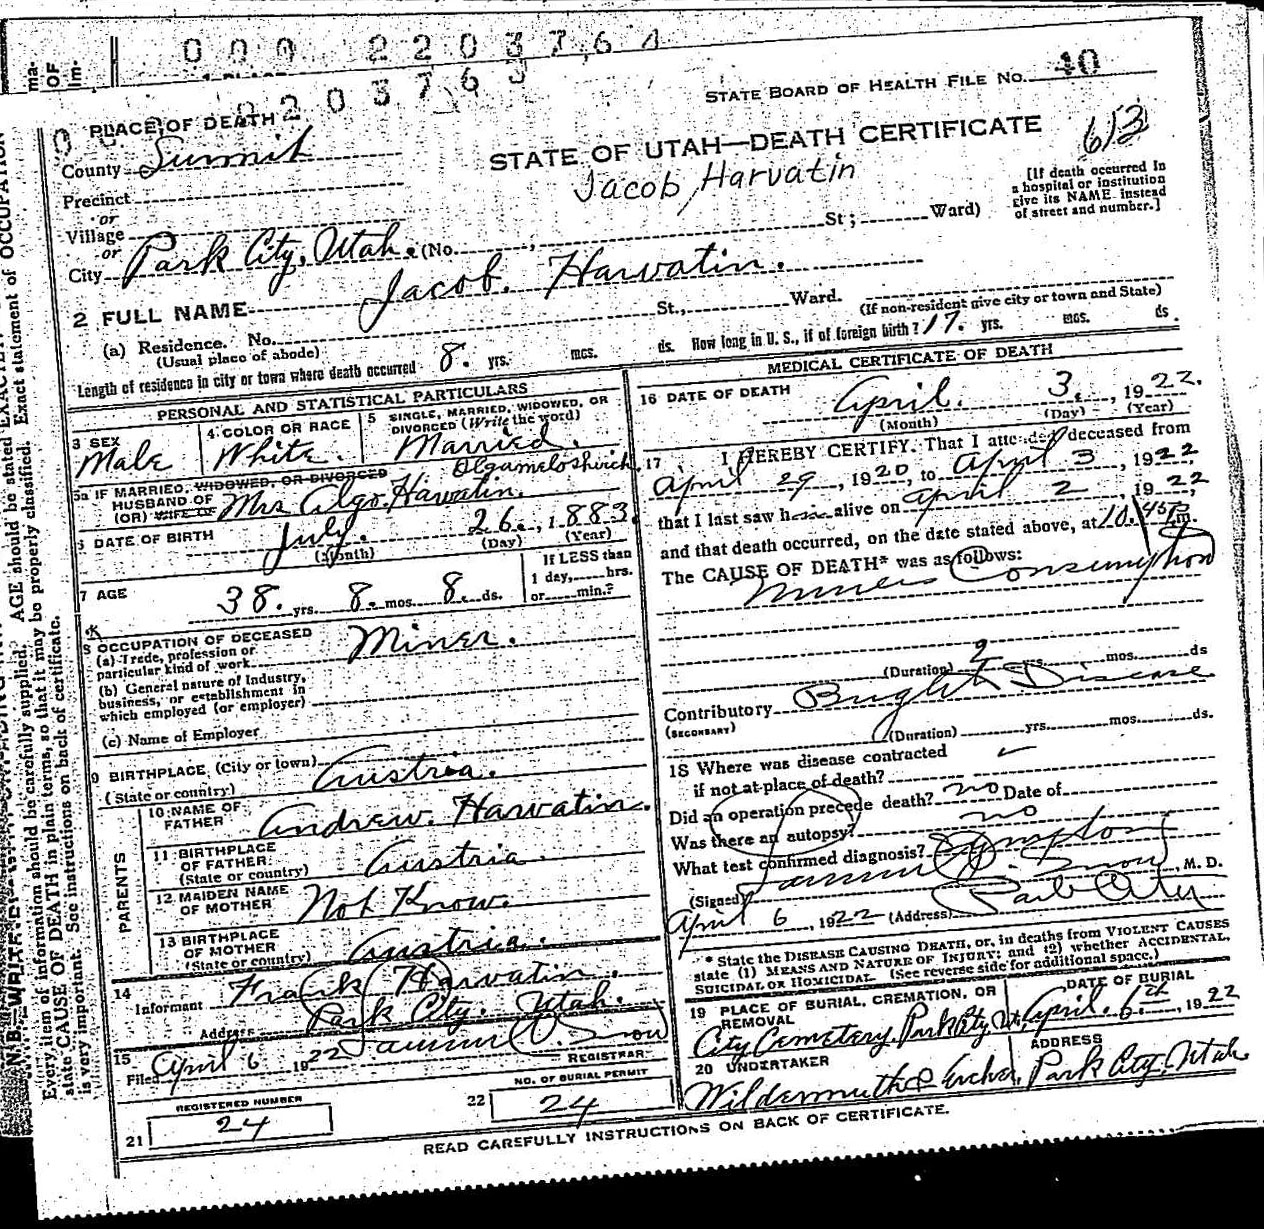 0 0 0 2 2 0 3 7 6 4
STATE BOARD OF HEALTH FILE NO. 40
PLACE OF DEATH
County Summit
STATE OF UTAH—DEATH CERTIFICATE 613
Jacob Harvatin
Precinct
or
Village
or
City Park City, Utah. (No. St; Ward)
[If death occurred in
a hospital or institution
give its NAME instead
of street and number.]
2 FULL NAME Jacob. Harvatin.
(a) Residence. No. St., Ward.
(Usual place of abode) (If non-resident give city or town and State)
Length of residence in city or town where death occurred 8. yrs. mos. ds. How long in U. S., if of foreign birth? 17. yrs. mos. ds.
PERSONAL AND STATISTICAL PARTICULARS
3 SEX
Male
4 COLOR OR RACE
White.
5 SINGLE, MARRIED, WIDOWED, OR
DIVORCED (Write the word)
Married.
5a IF MARRIED, WIDOWED, OR DIVORCED
HUSBAND OF
(OR) WIFE OF Mrs Algo Harvatin.
6 DATE OF BIRTH July. 26., 1883.
(Month) (Day) (Year)
7 AGE 38. yrs. 8. mos. 8. ds.
If LESS than
1 day, hrs.
or min.?
8 OCCUPATION OF DECEASED
(a) Trade, profession or
particular kind of work Miner.
(b) General nature of Industry,
business, or establishment in
which employed (or employer)
(c) Name of Employer
9 BIRTHPLACE, (City or town)
(State or country) Austria.
PARENTS
10 NAME OF
FATHER Andrew. Harvatin.
11 BIRTHPLACE
OF FATHER
(State or country) Austria.
12 MAIDEN NAME
OF MOTHER Not Know.
13 BIRTHPLACE
OF MOTHER
(State or country) Austria.
14
Informant Frank Harvatin.
Address Park City. Utah.
15
Filed April 6 1922 Snow
REGISTRAR
REGISTERED NUMBER
21 24
NO. OF BURIAL PERMIT
22 24
MEDICAL CERTIFICATE OF DEATH
16 DATE OF DEATH April. 3., 1922.
(Month) (Day) (Year)
17 I HEREBY CERTIFY. That I attended deceased from
April 29, 1920, to April 3, 1922,
that I last saw him alive on April 2, 1922,
and that death occurred, on the date stated above, at 10.45 P.m.
The CAUSE OF DEATH* was as follows:
Miners Consumption
(Duration) 2 yrs. mos. ds
Contributory Bright Disease
(SECONDARY)
(Duration) yrs. mos. ds.
18 Where was disease contracted
if not at place of death?
Did an operation precede death? no Date of
Was there an autopsy? no
What test confirmed diagnosis? Symptoms
(Signed) Snow, M. D.
April 6, 1922 (Address) Park City
* State the DISEASE CAUSING DEATH, or, in deaths from VIOLENT CAUSES
state (1) MEANS AND NATURE OF INJURY; and (2) whether ACCIDENTAL,
SUICIDAL OR HOMICIDAL. (See reverse side for additional space.)
19 PLACE OF BURIAL, CREMATION, OR
REMOVAL
City Cemetery. Park City Ut.
DATE OF BURIAL
April. 6th, 1922
20 UNDERTAKER
Wildermuth
ADDRESS
Park City. Utah
READ CAREFULLY INSTRUCTIONS ON BACK OF CERTIFICATE.
Every item of information should be carefully supplied. AGE should be stated EXACTLY.
state CAUSE OF DEATH in plain terms, so that it may be properly classified. Exact statement of OCCUPATION
is very important. See instructions on back of certificate.